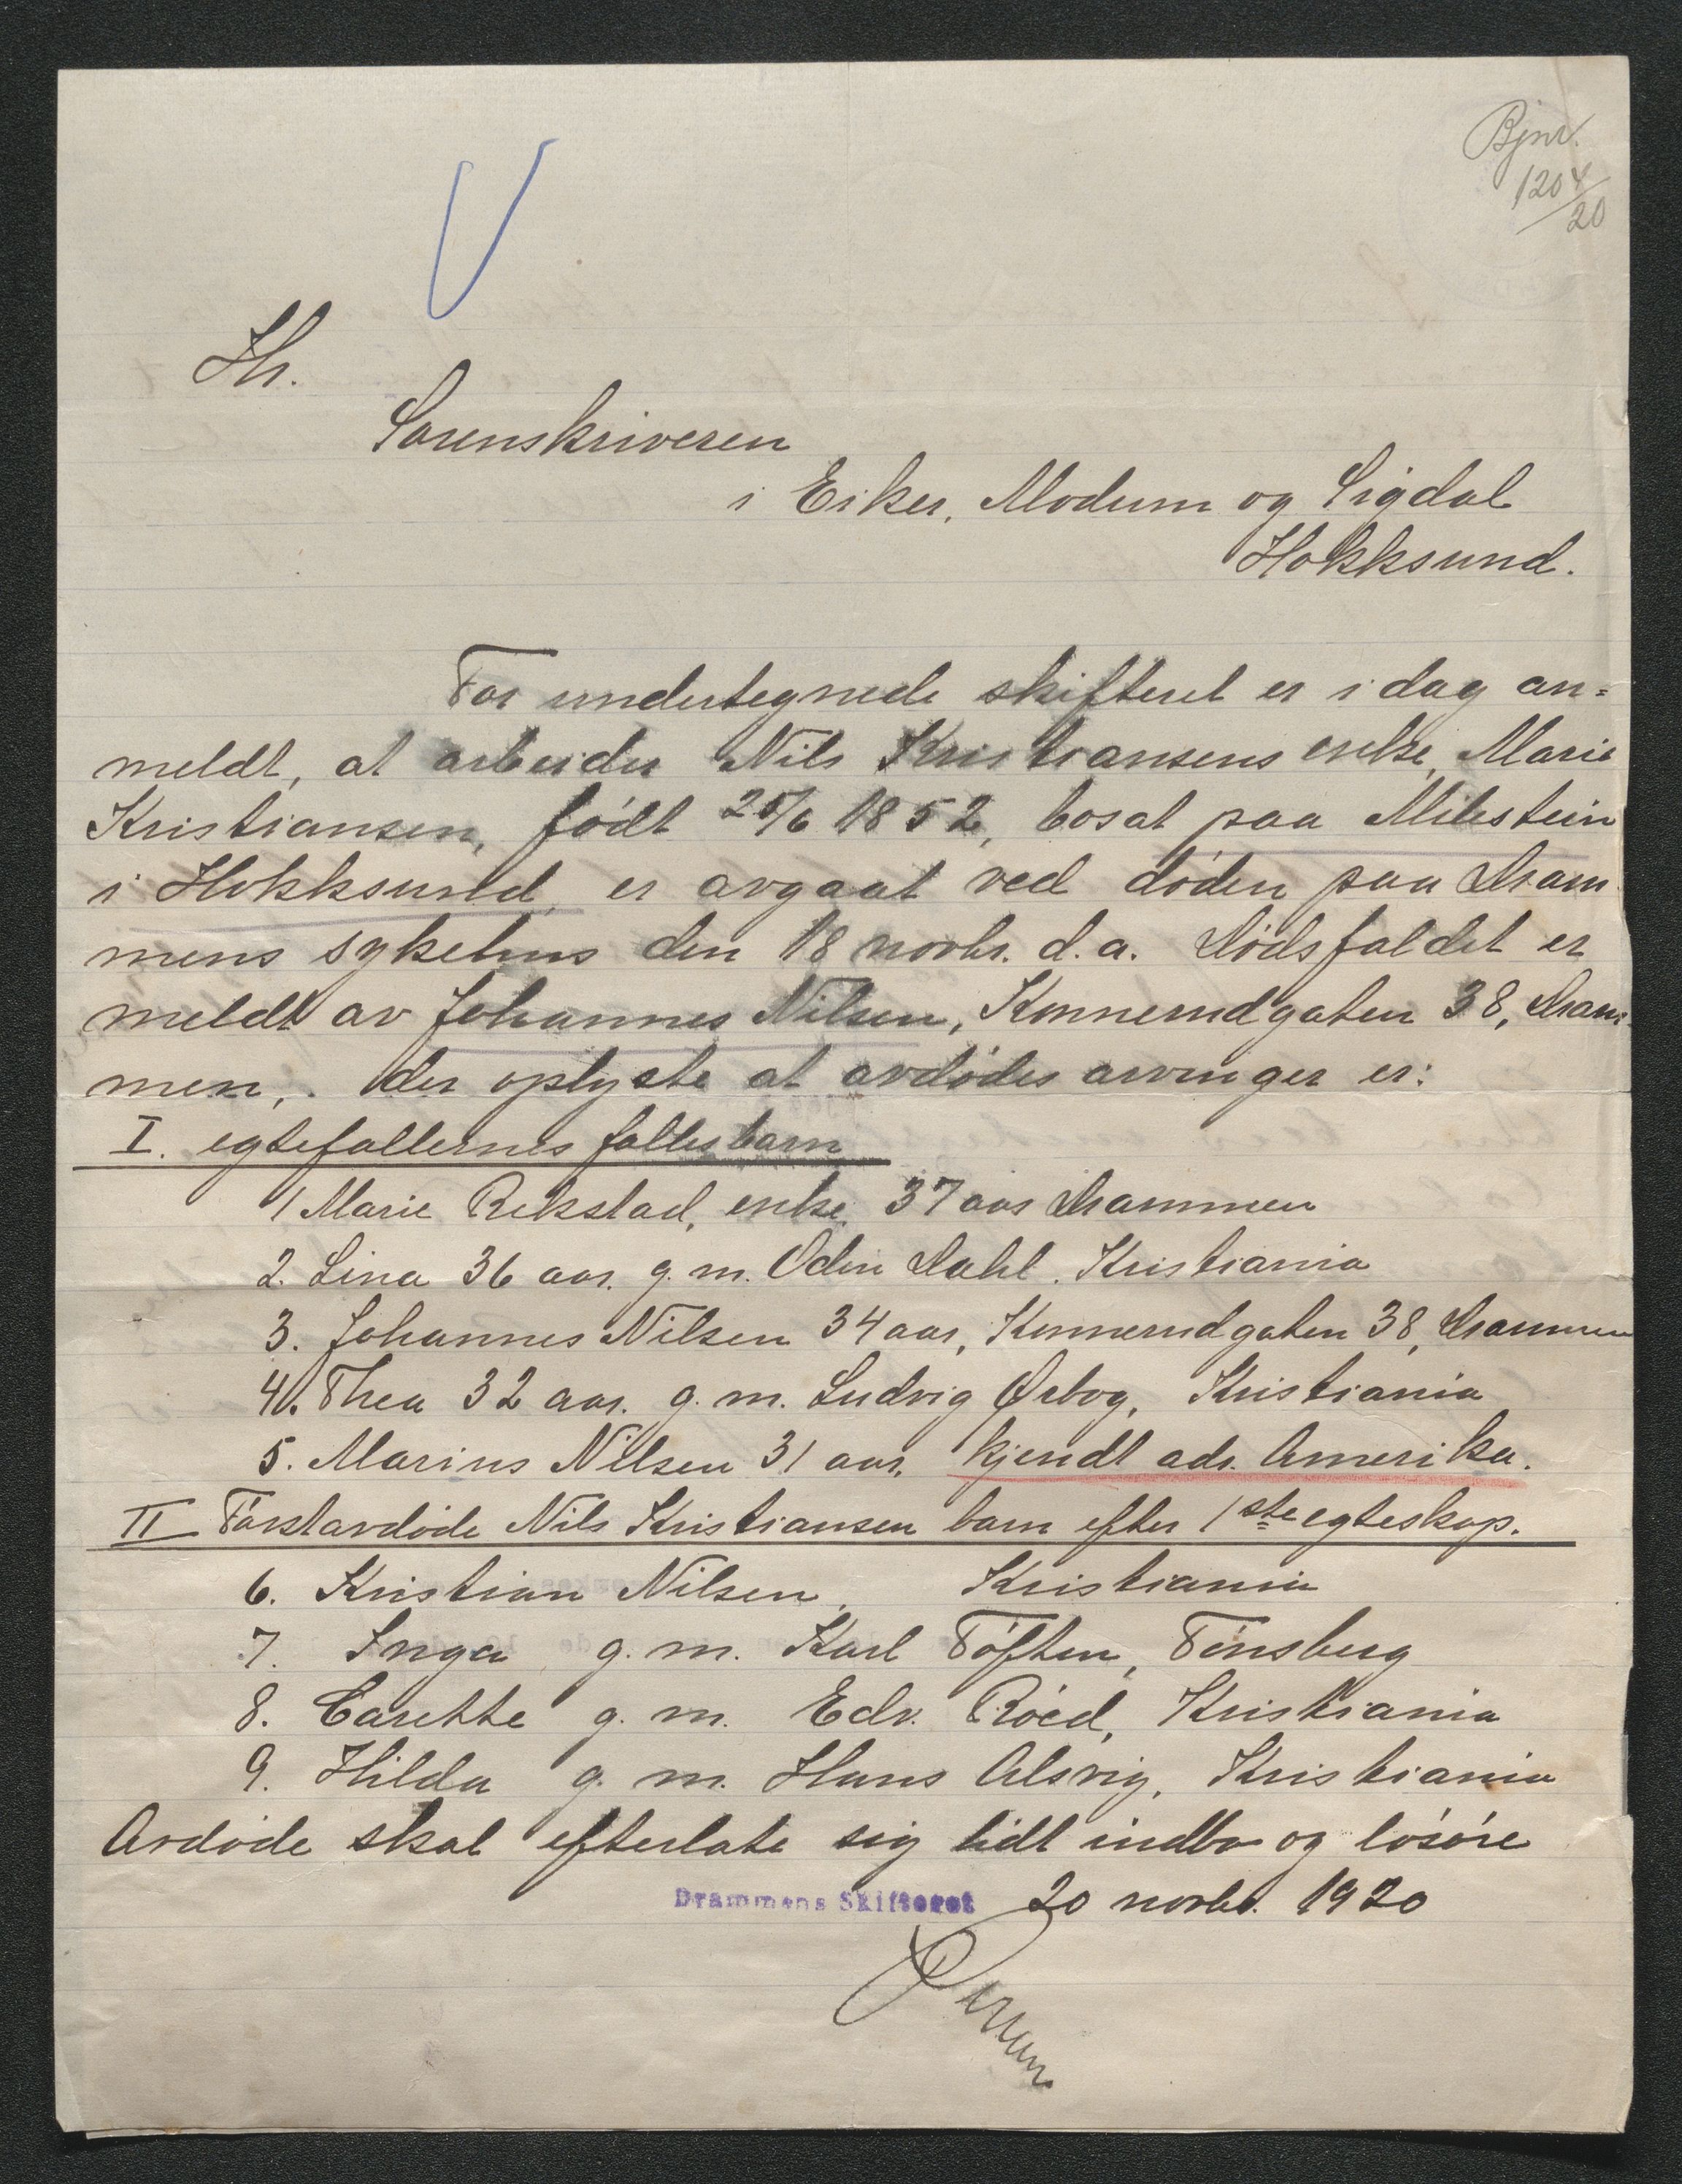 Bjnr.
1204/20
Hr.
Sorenskriveren
i Eiker, Modum og Sigdal
Hokksund.
For undertegnede skifteret er idag an=
meldt, at arbeider Nils Kristiansens enke, Marie
Kristiansen, født 25/6 1852, bosat paa Milestein
i Hokksund, er avgaat ved døden paa Dram
mens sykehus den 18 novbr. d.a. Dødsfaldet er
meldt av Johannes Nilsen, Konnerudgaten 38, Dram
men, der oplyste at avdødes arvinger er:
I. egtefællernes fællesbarn
1 Marie Rekstad, enke 37 aar Drammen
2. Lina 36 aar. g. m. Odin Dahl. Kristiania
3. Johannes Nilsen 34 aar, Konnerudgaten 38, Drammen
4. Thea 32 aar. g. m. Ludvig Ørbog, Kristiania
5. Marius Nilsen 31 aar, kjendt adr. Amerika.
II Førstavdøde Nils Kristiansen barn efter 1ste egteskap.
6. Kristian Nilsen, Kristiania
7. Inga g. m. Karl Tøften, Tønsberg
8. Carethe g. m. Edv. Röed, Kristiania
9. Hilda g. m. Hans Alsvig, Kristiania
Avdøde skal efterlate sig lidt indbo og løsøre
Drammens Skifteret 20 novbr. 1920